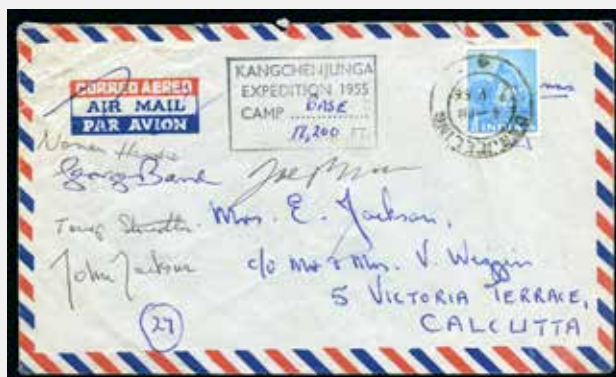 CORREO AEREO
AIR MAIL
PAR AVION
KANGCHENJUNGA
EXPEDITION 1955
CAMP BASE
17,200 FT.
INDIA
DARJEELING
Norman Hardie
George Band
Joe Brown
Tony Streather
John Jackson
Mrs. E. Jackson,
c/o Mr & Mrs. V. Wiggin
5 VICTORIA TERRACE,
CALCUTTA
27